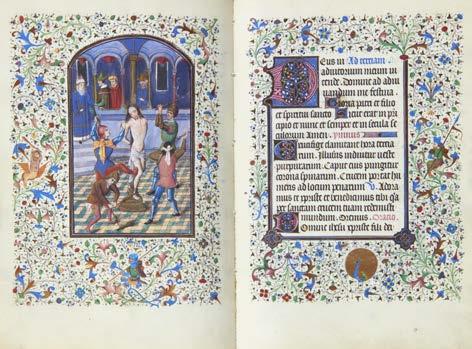 Deus in Ad terciam
adiutorium meum in ten
de. Domine ad adiu
uandum me festina
Gloria patri et filio
et spiritui sancto Sicut erat in prin
cipio et nunc et semper et in secula se
culorum Amen.
Crucifige clamitant hora terciar
um. Illusus induitur ueste
purpurarum. Caput eius pungitur
corona spinarum. Crucem portat hu
meris ad locum penarum V. Adora
mus te christe et benedicimus tibi quia
per sanctam crucem tuam redemisti
mundum. Oremus Oracio.
Domine ihesu christe fili dei